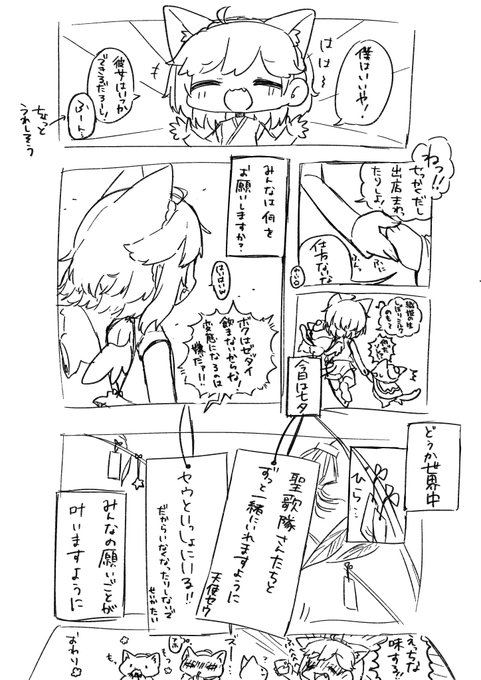 僕はいいや!
ははは
彼女はいつか
できるだろし!
ふーん…
ちょっと
うれしそう
ねっ!!
せっかくだし
出店まわっ
たりしよ!
仕方ないな
みんなは何を
お願いしますか?
はいはい
ボクはゼッタイ
飲まないからな!
変態になるのは
嫌だ!!!
今日は七夕
どうか世界中
ひら…
聖歌隊さんたちと
ずっと一緒にいれますように
天使セウ
セウといっしょにいる!!
だからいなくなったりしないで
せいかたい
みんなの願いごとが
叶いますように
味する!!
おわり